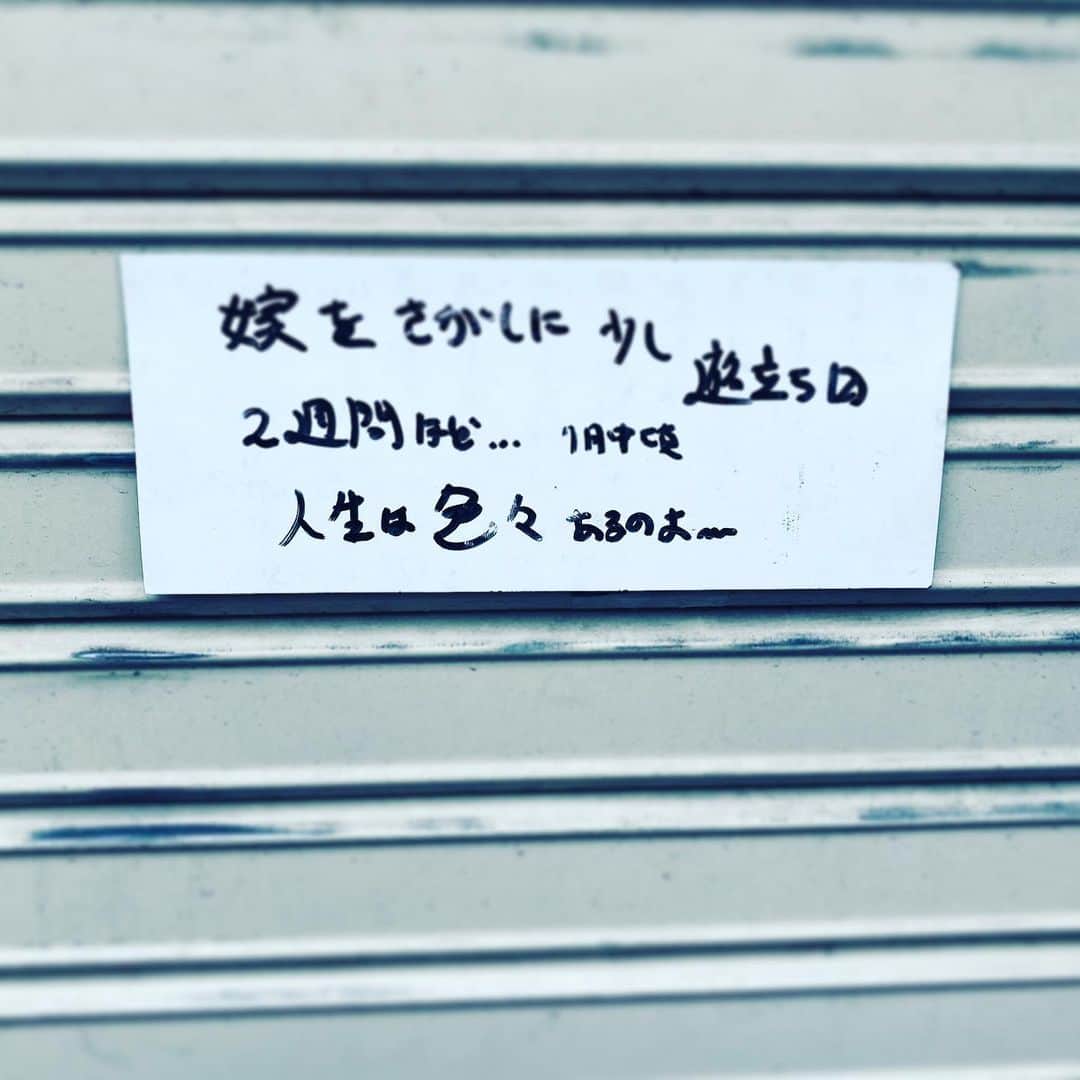 嫁をさがしに 少し
2週間ほど... 1月中頃
人生は色々あるのよ〜